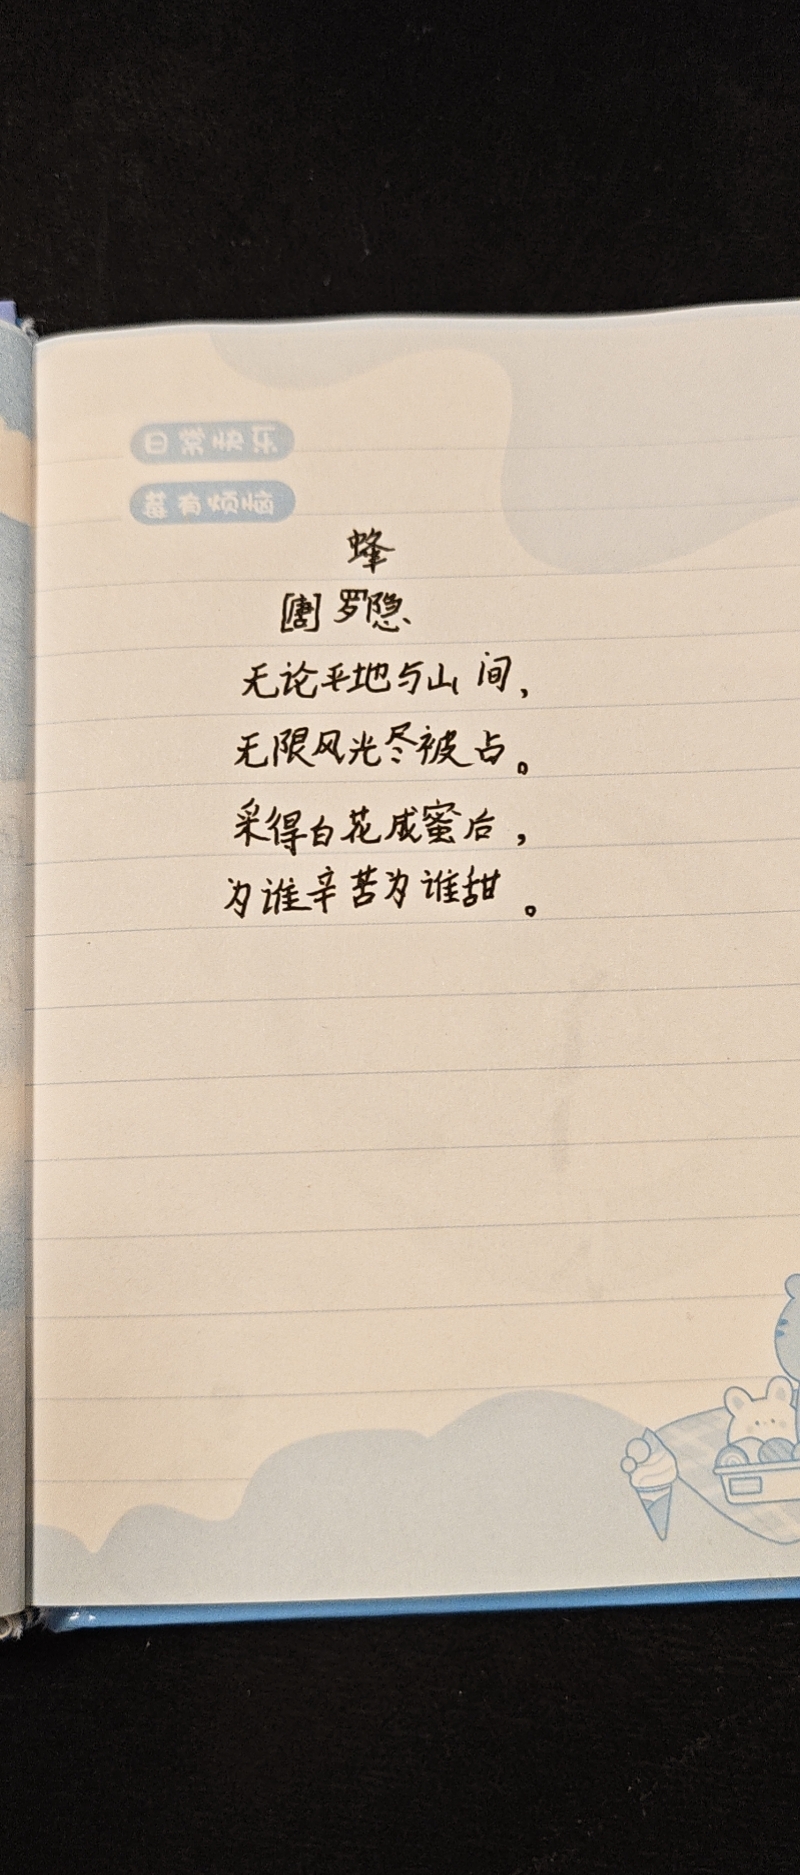 日常快乐
莓有烦恼
蜂
[唐] 罗隐
无论平地与山间，
无限风光尽被占。
采得百花成蜜后，
为谁辛苦为谁甜。